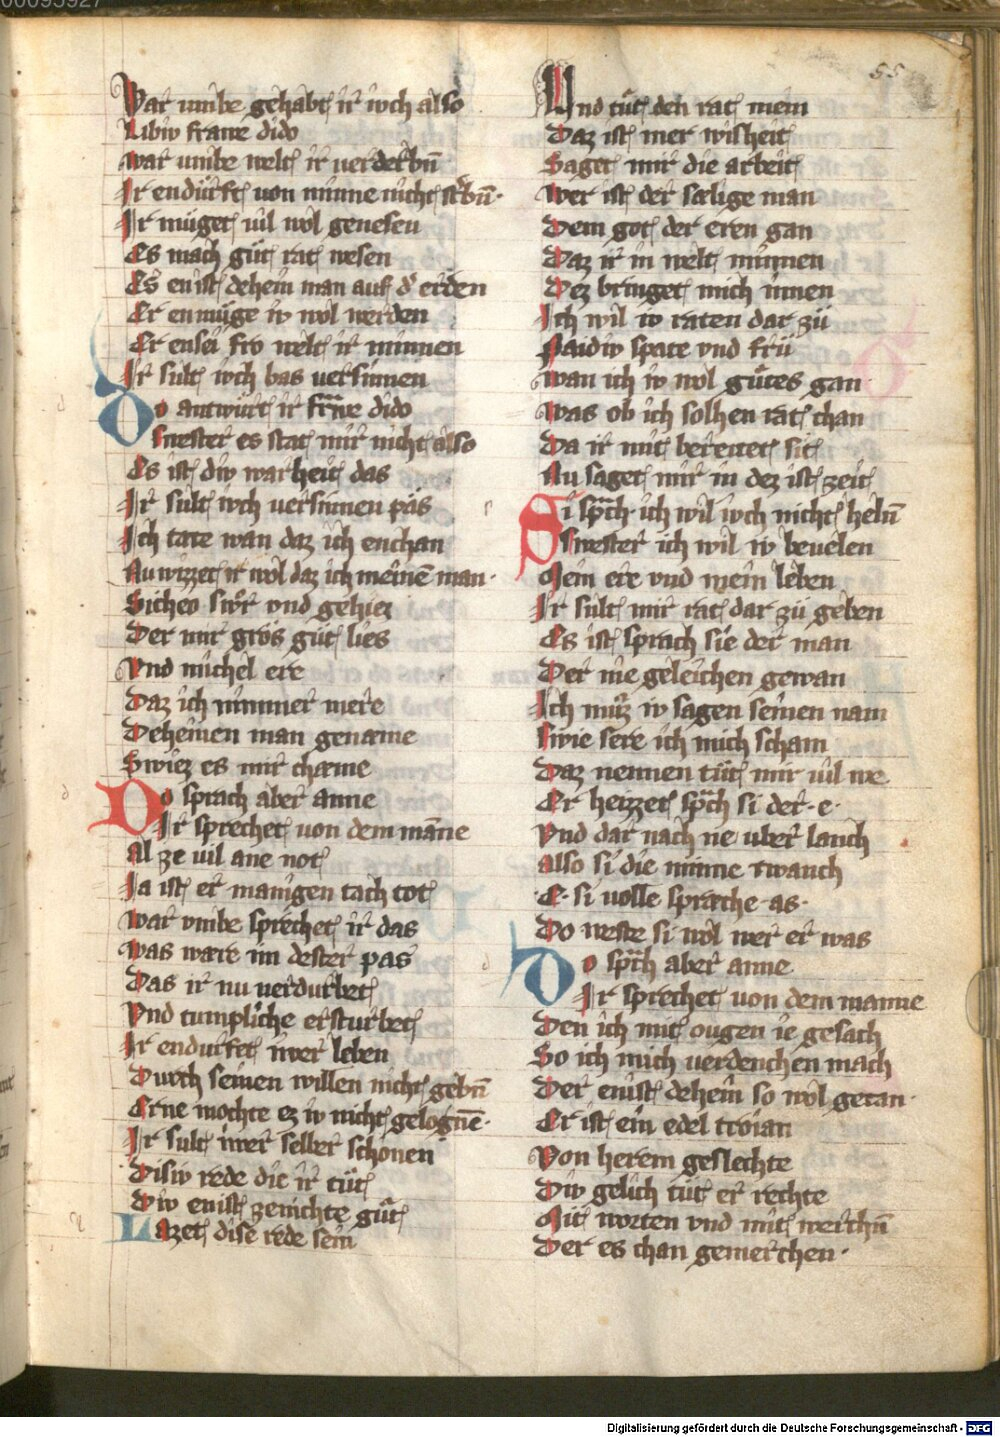 55
War umbe gehabt ir iwch also
Libiw frawe dido
war umbe welt ir uerderbn̄
Ir endürft von minne nicht sterbn̄·
Ir müget uil wol genesen
Es mach güt rat wesen
Es enist dehein man auf d erden
Er enmüge iw wol werden
Er ensei frv welt ir minnen
Ir sult iwch bas uersinnen
Do antwürt ir frawe dido
Swester es stat mir nicht also
Es ist diw warheit das
Ir sult iwch uersinnen pas
Ich tate wan daz ich enchan
Nu wizzet ir wol daz ich meinē man·
Sicheo swr vnd gehiez
Der mir gros güt lies
Vnd michel ere
Daz ich nimmer mere
Deheinen man genæme
Swiez es mir chæme
Do sprach aber anne
Ir sprechet von dem māne
Al ze uil ane not
Ja ist er manigen tach tot
war vmbe sprechet ir das
was ware im dester pas
Das ir nu uerdurbet
Vnd tumpliche ersturbet
Ir endurfet iwer leben
Durch seinen willen nicht gebn̄
Erne mochte ez iw nicht gelognē·
Ir sult iwer selber schonen
Disiw rede die ir tüt
Diw enist zenichte güt
Lazet dise rede sein
Und tüt den rat mein
Daz ist mer wisheit
Saget mir die arbeit
Wer ist der sælige man
Dem got der eren gan
Daz ir in welt minnen
Dez bringet mich innen
Ich wil iw raten dar zü
Paidiw spate vnd frü
wan ich iw wol gütes gan
was ob ich solhen rat chan
Da ir mit bereitet sit
Nu saget mir in dez ist zeit
Si sprch ich wil iwch nicht heln̄
Swester ich wil iw beuelen
Mein ere vnd mein leben
Ir sült mir rat dar zü geben
Es ist sprach sie der man
Der nie geleichen gewan
Ich müz iw sagen seinen nam
swie sere ich mich scham
Daz nennen tüt mir uil we
Er heizzet sprch si der·e·
Vnd dar nach ne uber lanch
also si die minne twanch
·E·si uolle sprache·as·
Do weste si wol wer er was
Do sprch aber anne
Ir sprechet von dem manne
Den ich mit ougen ie gesach
So ich mich uerdenchen mach
Der enist dehein so wol getan·
Er ist ein edel troian
Von herem geslechte
Diw gelich tüt er rechte
Mit worten vnd mit werchn̄
Der es chan gemerchen·
Digitalisierung gefördert durch die Deutsche Forschungsgemeinschaft - DFG